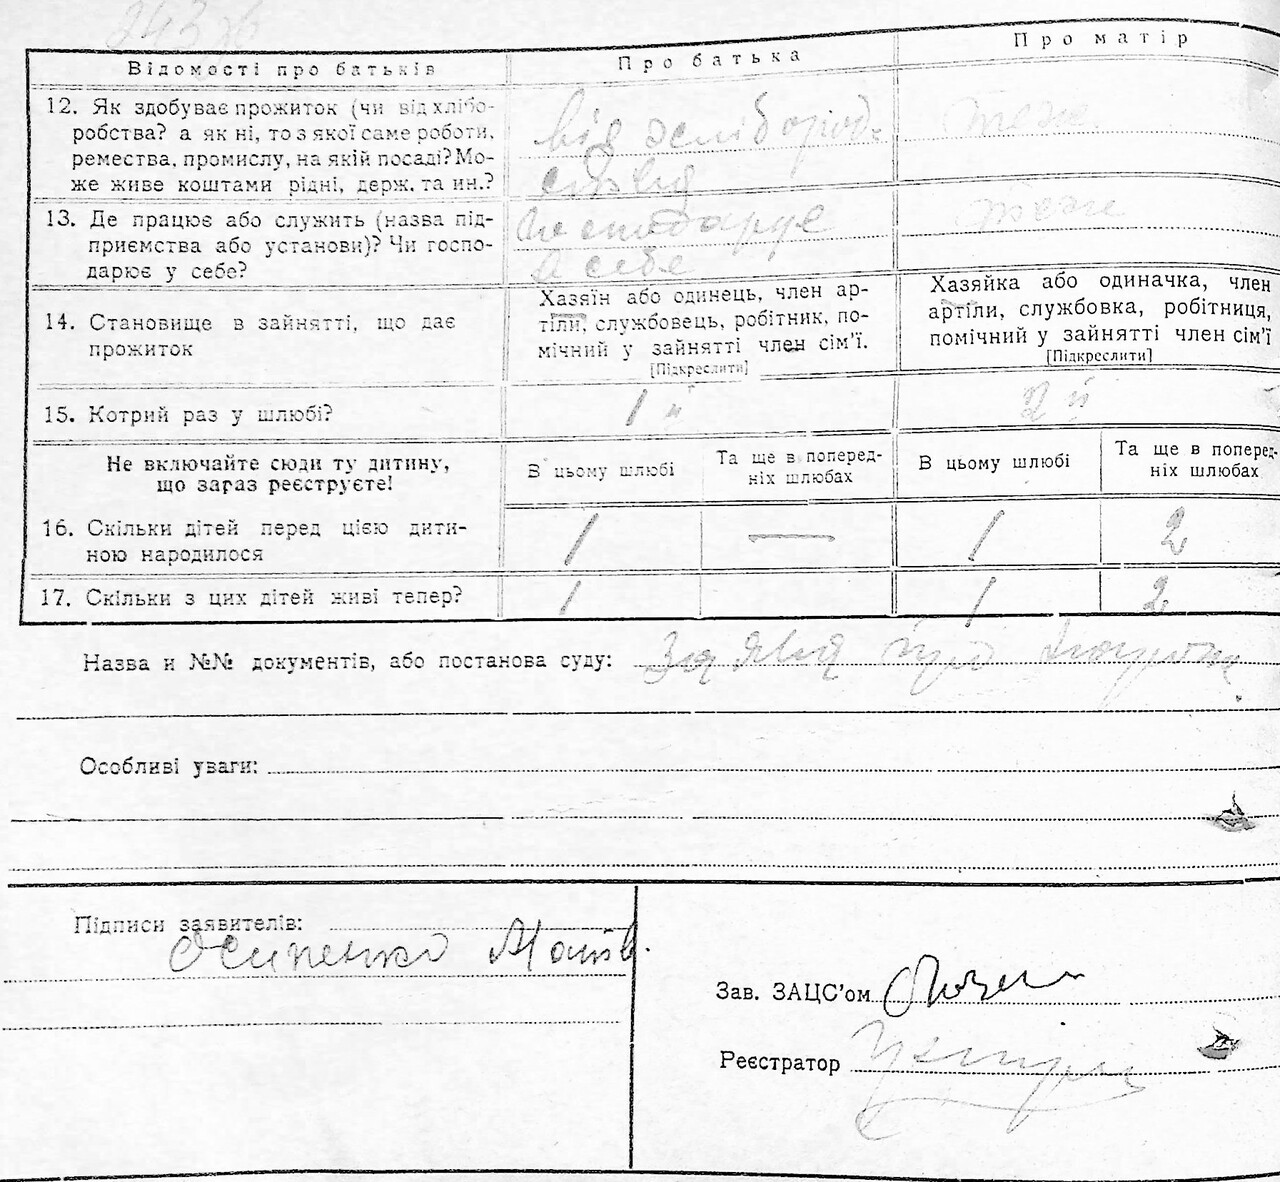 243
Відомості про батьків
Про батька
Про матір
12. Як здобуває прожиток (чи від хлібо-
робства? а як ні, то з якої саме роботи,
ремества, промислу, на якій посаді? Мо-
же живе коштами рідні, держ. та ин.?
від
теж
13. Де працює або служить (назва під-
приємства або установи)? Чи госпо-
дарює у себе?
в себе
теж
14. Становище в зайнятті, що дає
прожиток
Хазяїн або одинець, член ар-
тіли, службовець, робітник, по-
мічний у зайнятті член сім'ї.
[Підкреслити]
Хазяйка або одиначка, член
артіли, службовка, робітниця,
помічний у зайнятті член сім'ї
[Підкреслити]
15. Котрий раз у шлюбі?
1й
2й
Не включайте сюди ту дитину,
що зараз реєструєте!
В цьому шлюбі
Та ще в поперед-
ніх шлюбах
В цьому шлюбі
Та ще в поперед-
ніх шлюбах
16. Скільки дітей перед цією дити-
ною народилося
1
—
1
2
17. Скільки з цих дітей живі тепер?
1
1
2
Назва и №№ документів, або постанова суду: Заява про
Особливі уваги:
Підписи заявителів:
Осипенко
Зав. ЗАЦС'ом
Реєстратор